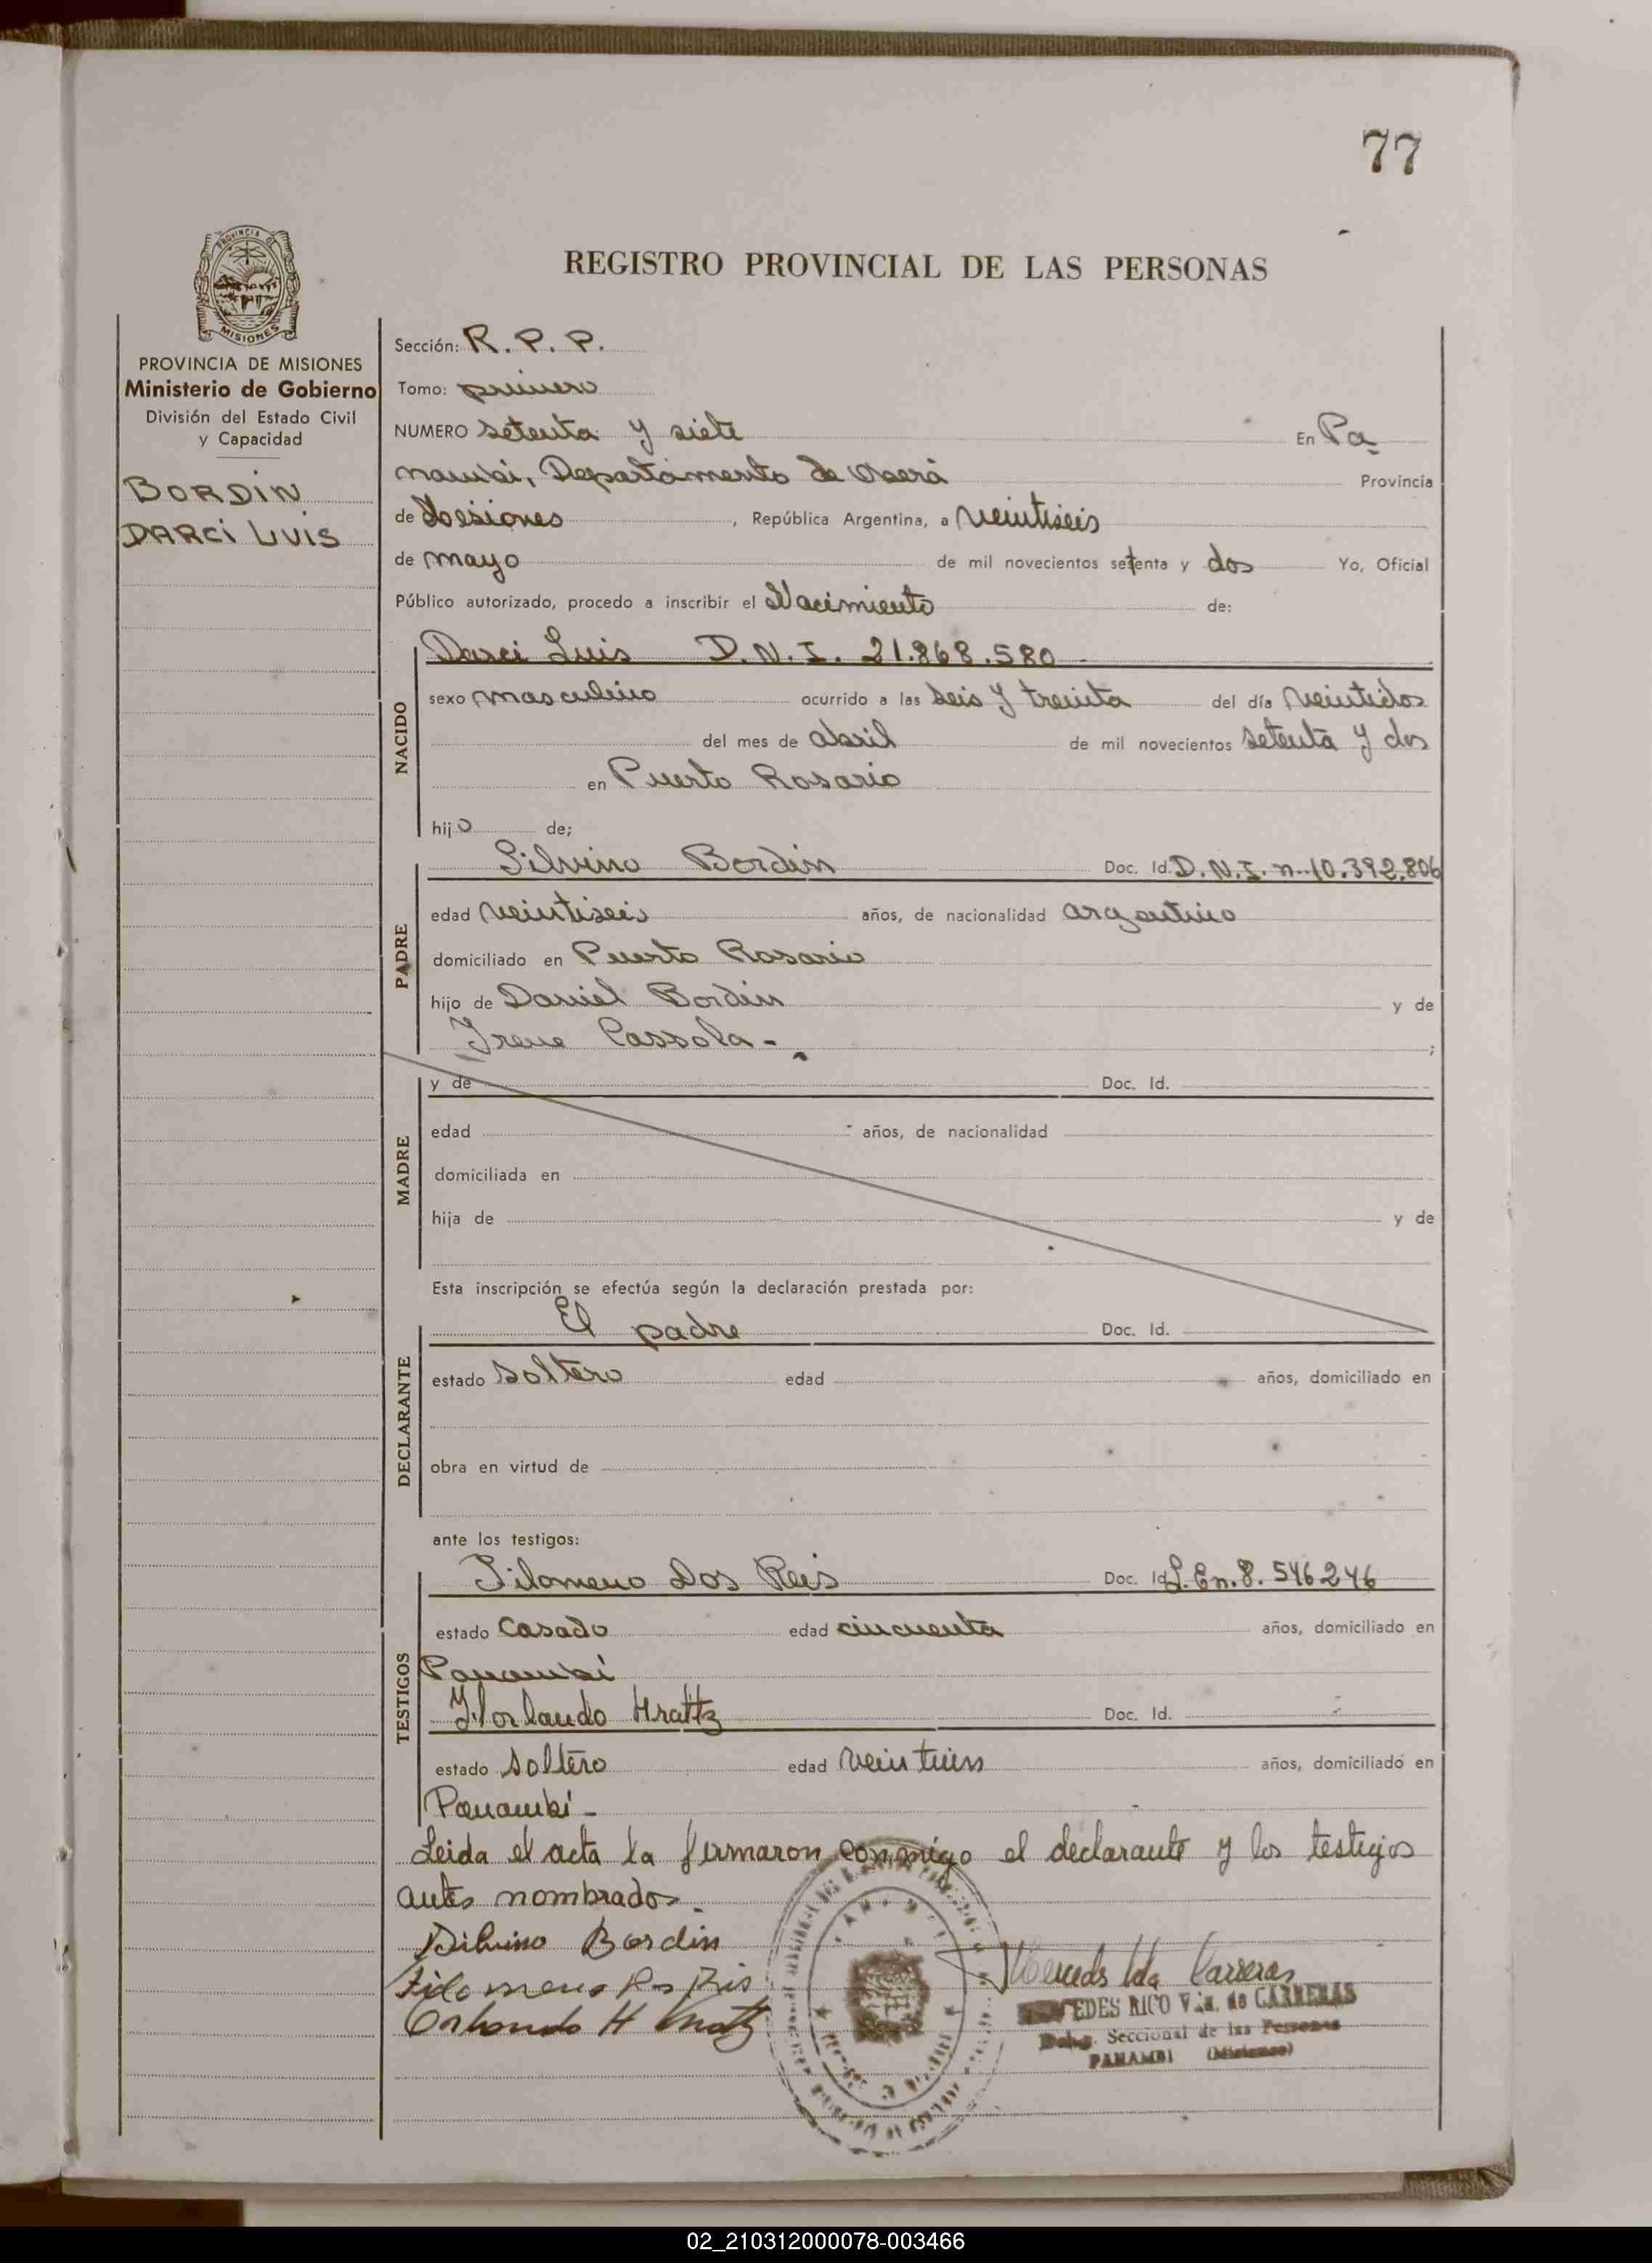 77
PROVINCIA DE
MISIONES
REGISTRO PROVINCIAL DE LAS PERSONAS
PROVINCIA DE MISIONES
Ministerio de Gobierno
División del Estado Civil
y Capacidad
BORDIN
DARCI LUIS
Sección: R. P. P.
Tomo: primero
NUMERO setenta y siete En Pa
nambí, Departamento de Oberá Provincia
de Misiones, República Argentina, a veintiseis
de mayo de mil novecientos setenta y dos Yo, Oficial
Público autorizado, procedo a inscribir el Nacimiento de:
NACIDO
Darci Luis D.N.I. 21.868.580
sexo masculino ocurrido a las seis y treinta del día veintidos
del mes de abril de mil novecientos setenta y dos
en Puerto Rosario
hijo de;
PADRE
Silvino Bordin Doc. Id. D.N.I. n. 10.392.806
edad veintiseis años, de nacionalidad argentino
domiciliado en Puerto Rosario
hijo de Daniel Bordin y de
Irene Cassola - ;
MADRE
y de Doc. Id.
edad años, de nacionalidad
domiciliada en
hija de y de
Esta inscripción se efectúa según la declaración prestada por:
DECLARANTE
El padre Doc. Id.
estado soltero edad años, domiciliado en
obra en virtud de
ante los testigos:
TESTIGOS
Filomeno Dos Reis Doc. Id. L. En. 8. 546246
estado casado edad cincuenta años, domiciliado en
Panambí
Horlando Hrattz Doc. Id.
estado soltero edad años, domiciliado en
Panambí -
Leida el acta la firmaron conmigo el declarante y los testigos
antes nombrados.
Silvino Bordin
Filomeno
Orlando H
Mercedes Carreras
RICO Vda. de CARRERAS
Seccional de las Personas
PANAMBI (Misiones)
02_210312000078-003466